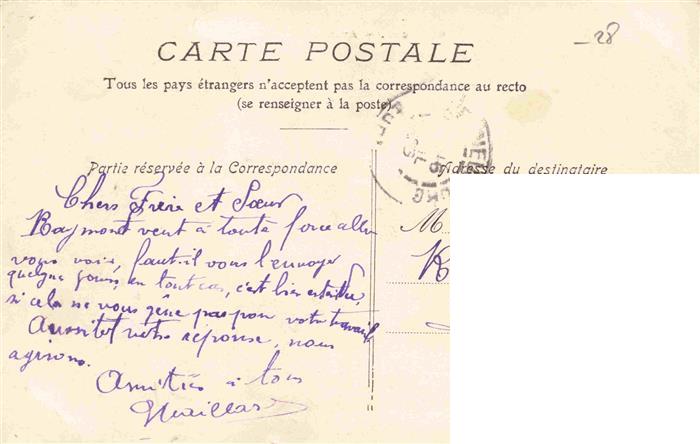 28
CARTE POSTALE
Tous les pays étrangers n'acceptent pas la correspondance au recto
(se renseigner à la poste)
Partie réservée à la Correspondance
Adresse du destinataire
Chers Frère et Sœur
Raymont veut à toute force aller
vous voir, faut-il vous l'envoyer
quelque jours, en tout cas, c'est bien entendu,
si cela ne vous gêne pas pour votre travail
Aussitôt votre réponse, nous
agirons.
Amitiés à tous
M
K